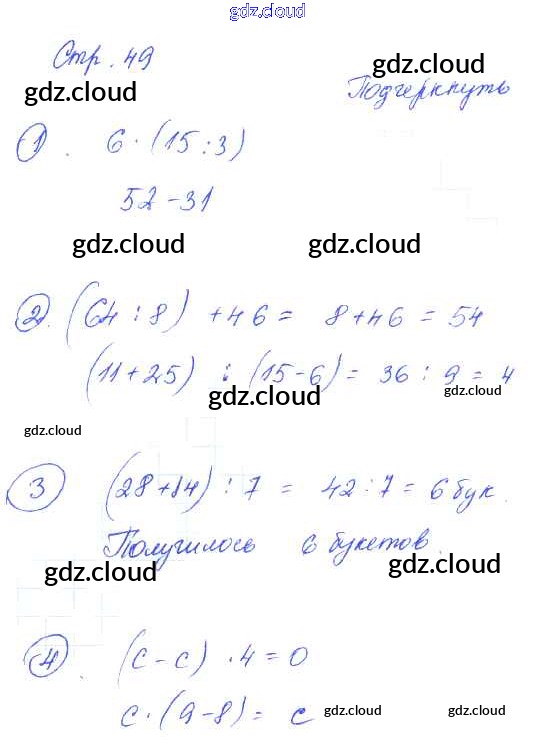 gdz.cloud
Стр. 49
gdz.cloud
gdz.cloud
Подчеркнуть
1. 6 · (15 : 3)
52 - 31
gdz.cloud gdz.cloud
2. (64 : 8) + 46 = 8 + 46 = 54
(11 + 25) : (15 - 6) = 36 : 9 = 4
gdz.cloud gdz.cloud
gdz.cloud
3 (28 + 14) : 7 = 42 : 7 = 6 бук.
Получилось 6 букетов.
gdz.cloud gdz.cloud
4. (с - с) · 4 = 0
с · (9 - 8) = с
gdz.cloud gdz.cloud gdz.cloud